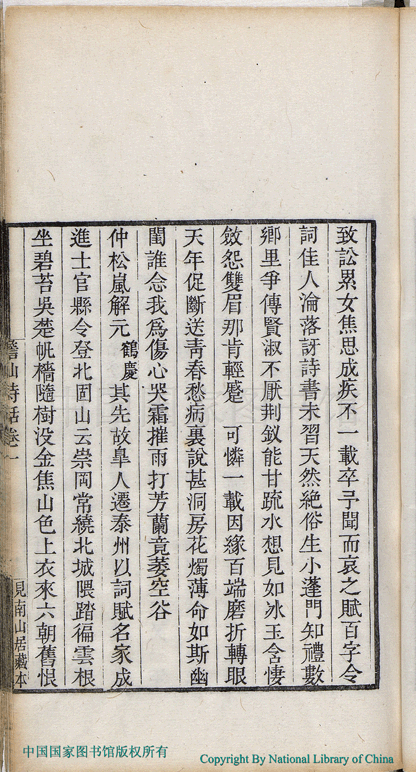 致訟累女焦思成疾不一載卒予聞而哀之賦百字令
詞佳人淪落訝詩書未習天然絕俗生小蓬門知禮數
鄉里爭傳賢淑不厭荆釵能甘疏水想見如冰玉含悽
斂怨雙眉那肯輕蹙　可憐一載因緣百端磨折轉眼
天年促斷送靑春愁病裏說甚洞房花燭薄命如斯幽
閨誰念我爲傷心哭霜摧雨打芳蘭竟萎空谷
仲松嵐解元鶴慶其先故臯人遷泰州以詞賦名家成
進士官縣令登北固山云崇岡常繞北城隈踏徧雲根
坐碧苔吳楚帆檣隨樹沒金焦山色上衣來六朝舊恨
山詩話卷一
見南山居藏本
中国国家图书馆版权所有
Copyright By National Library of China